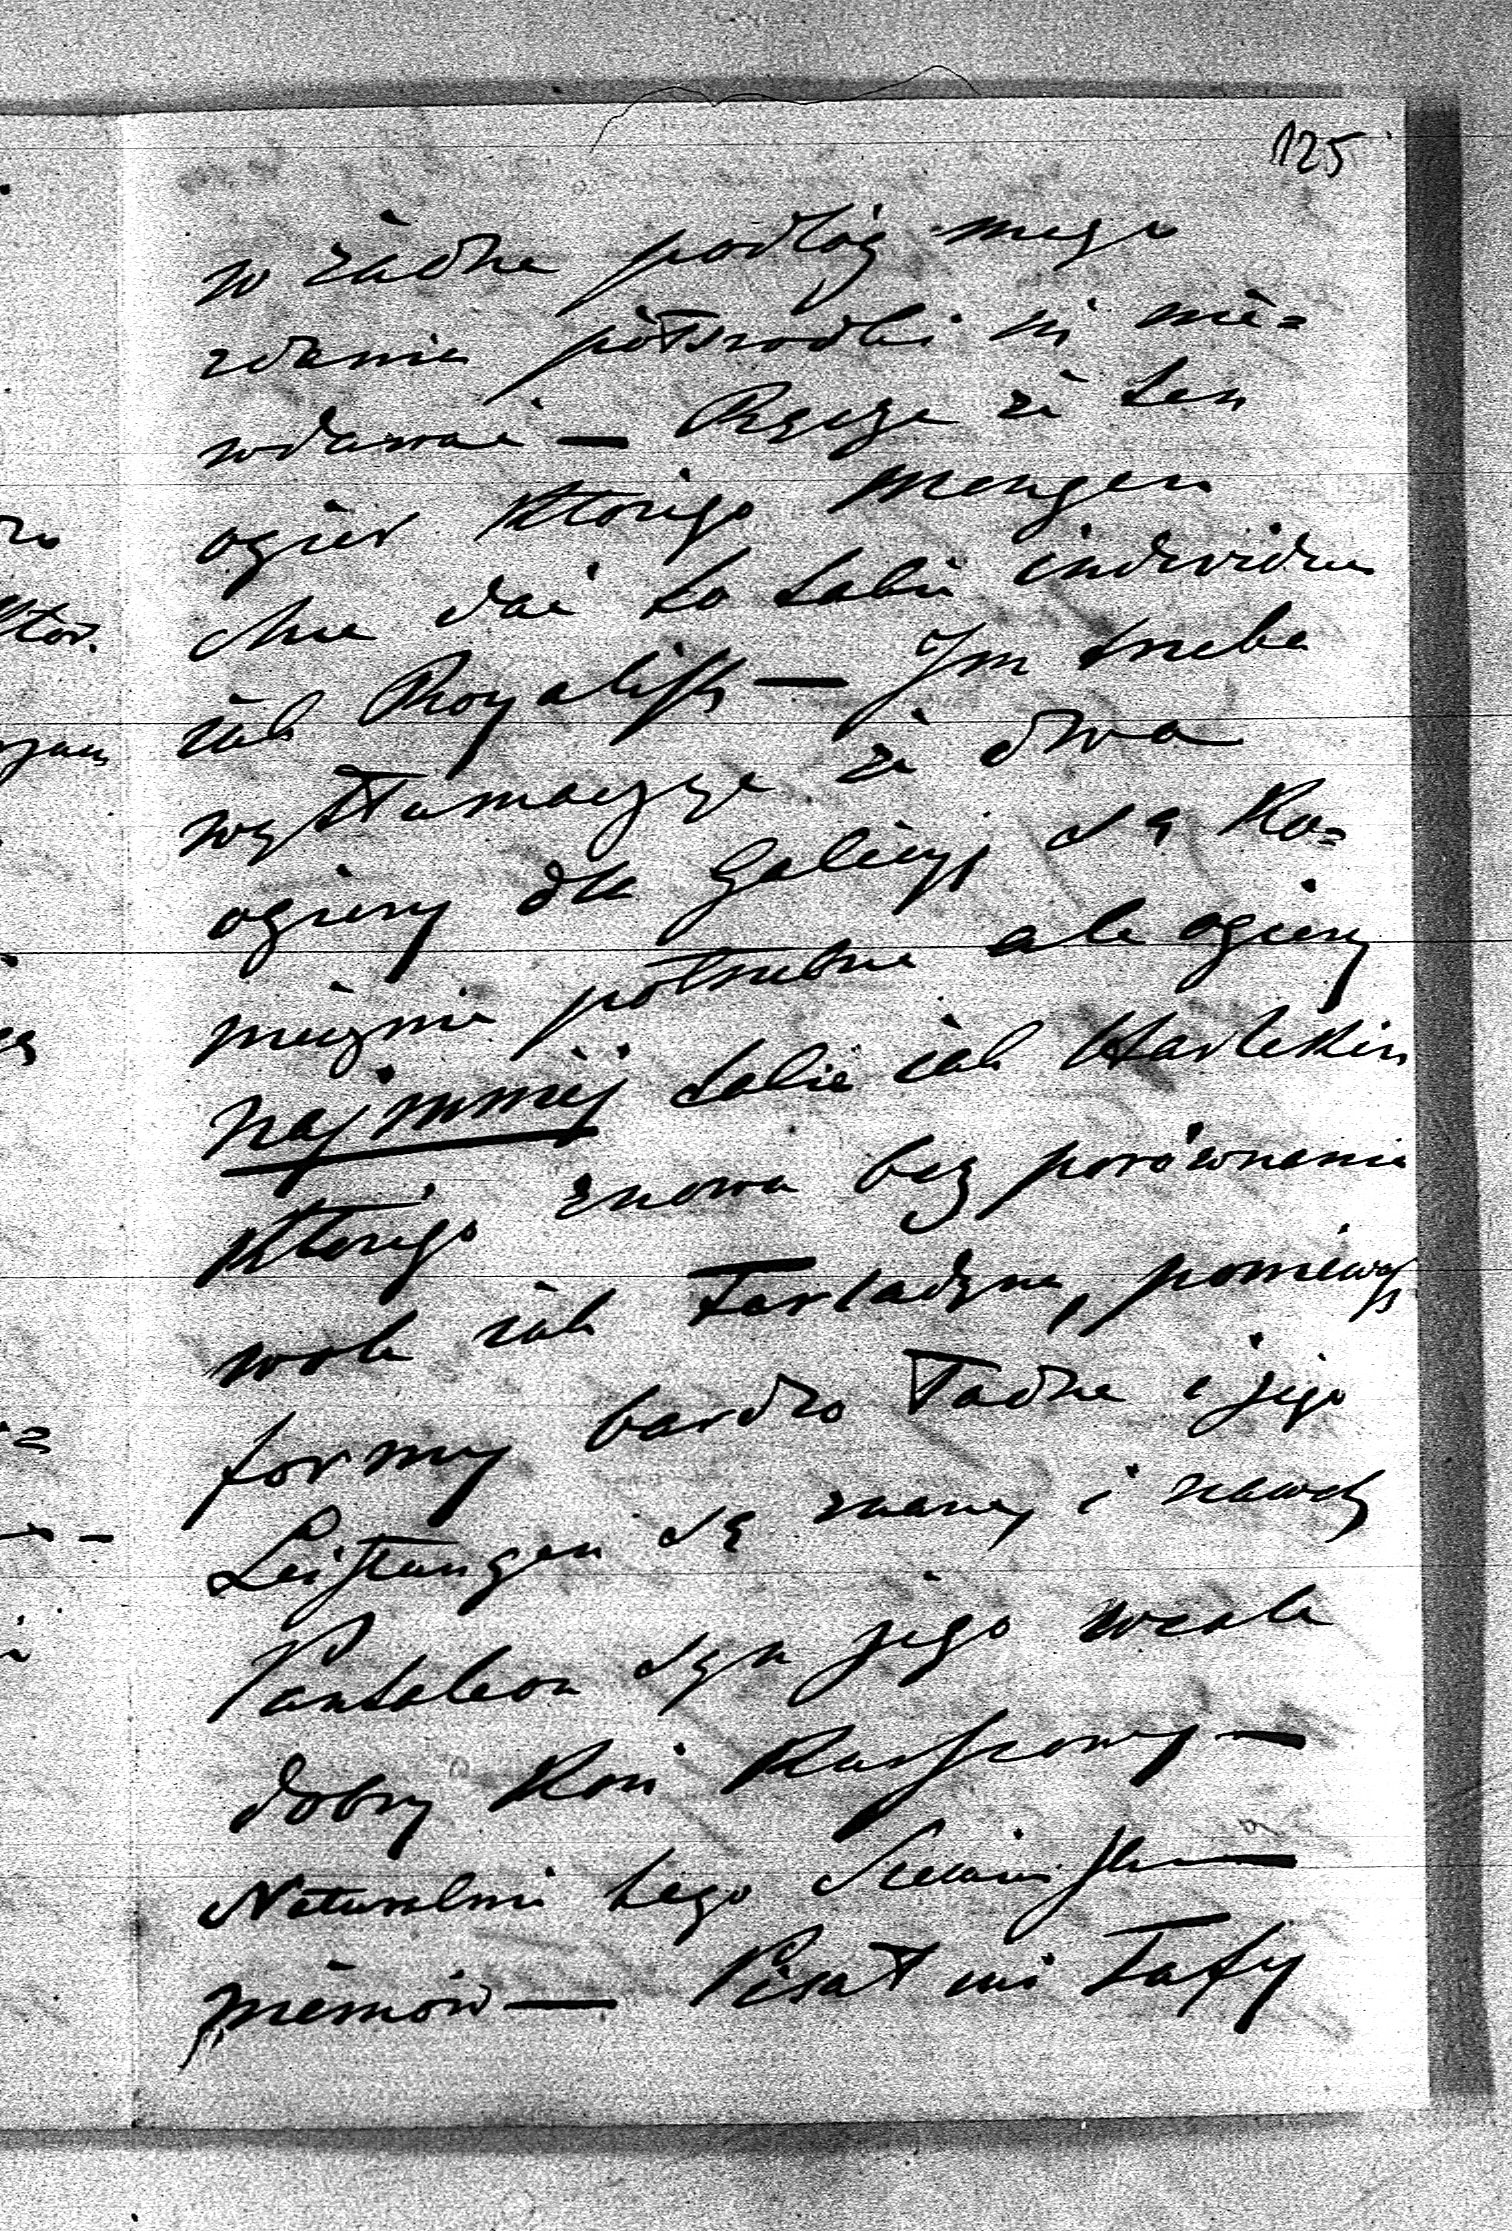 125
w żadne podłóg mego
zdania półsrodki się nie=
wdawać — Ręczę że ten
ogier ktorego Mengen
chce dać to takie individuum
jak Royalist — Im trzeba
wytłumaczyć że dwa
ogiery dla Galicyj są ko=
niecznie potrzebne ale ogiery
najmniej takie jak Harlekin
ktorego znowu bez porównania
wole jak Tartadyna, ponieważ
formy bardzo ładne i jego
Leistungen są znane, i nawet
Pantaleon syn jego wcale
dobry Koń Kasztowy —
Naturalnie tego
niemów — Pisał mi Taffy